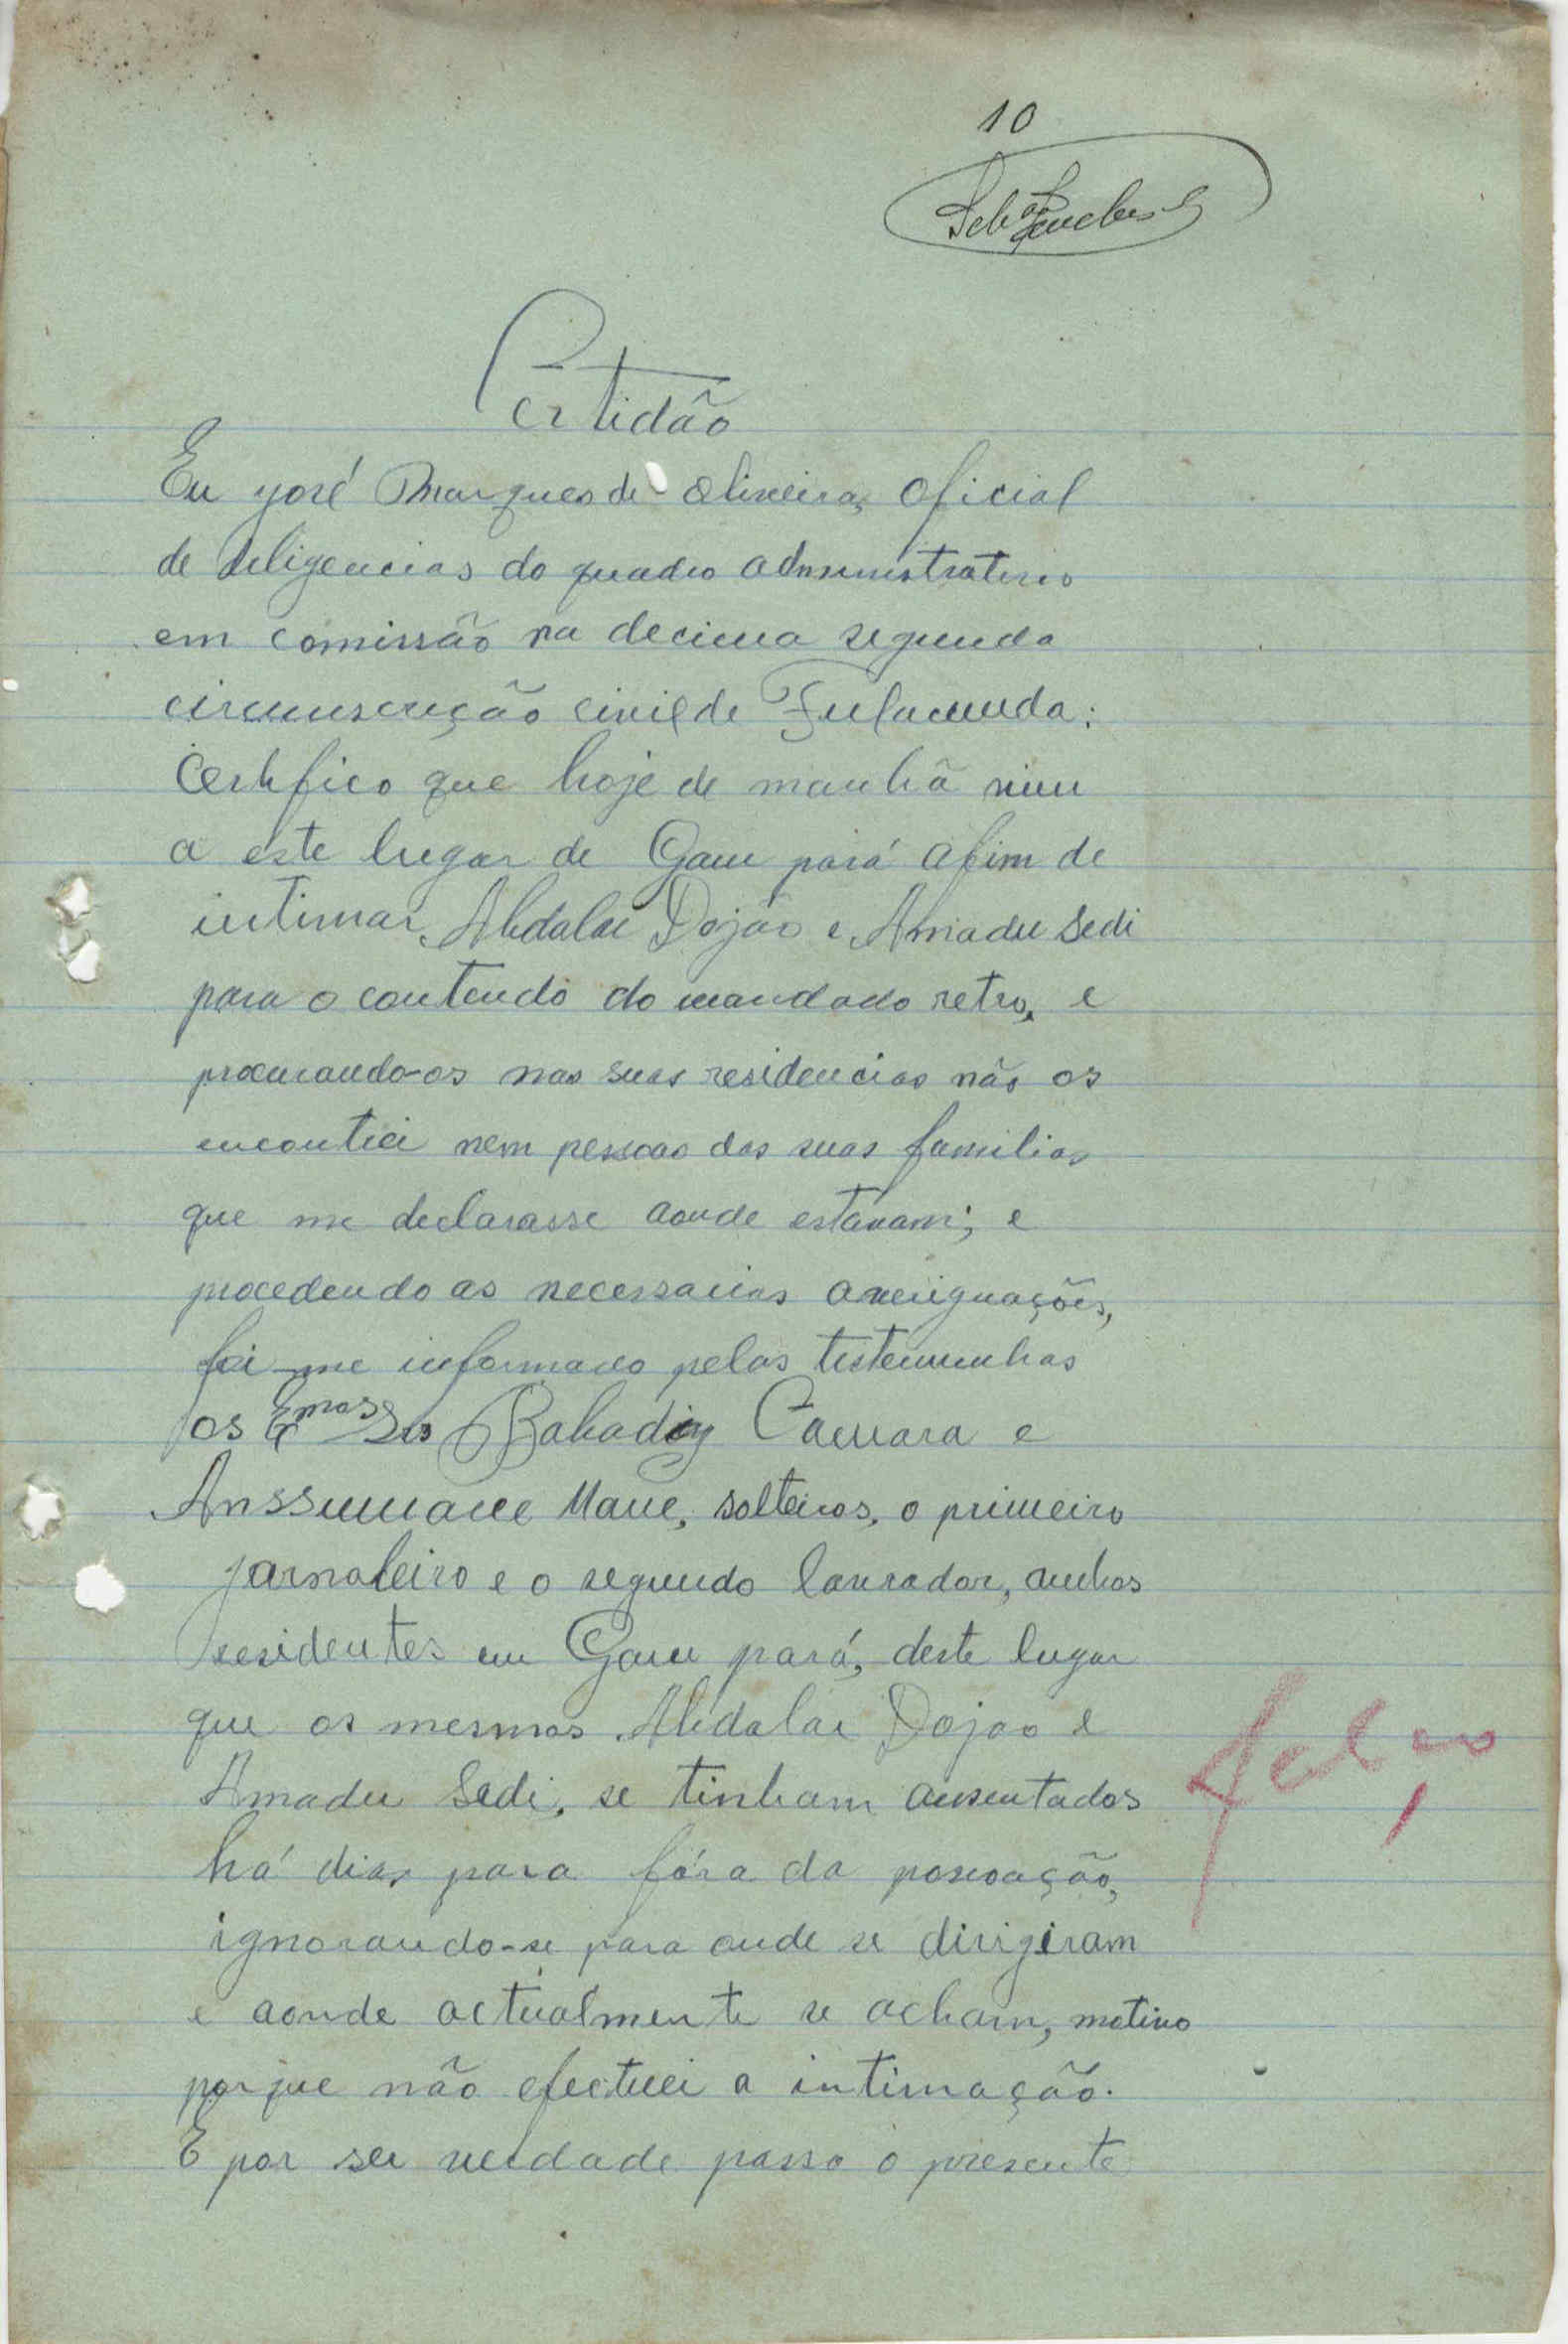 10
Certidão
Eu José Marques de Oliveira, Oficial
de deligencias do quadro administrativo
em comissão na decima segunda
circunscrição civil de Fulacunda:
Certifico que hoje de manhã vim
a este lugar de Gam pará afim de
intimar Abdalai Dojão e Amadu Sedi
para o conteudo do mandado retro, e
procurando-os nas suas residencias não os
encontrei nem pessoas das suas familias
que me declarasse aonde estavam; e
procedendo as necessarias averiguações,
foi-me informado pelas testemunhas
os Exmos Srs Camara e
Anssumane Mane, solteiros, o primeiro
jarnaleiro e o segundo lavrador, ambos
residentes em Gam pará, deste lugar
que os mesmos Abdalai Dojao e
Amadu Sedi, se tinham ausentados
há dias para fóra da povoação,
ignorando-se para onde se dirigiram
e aonde actualmente se acham, motivo
porque não efectuei a intimação.
E por ser verdade passo o presente
falço